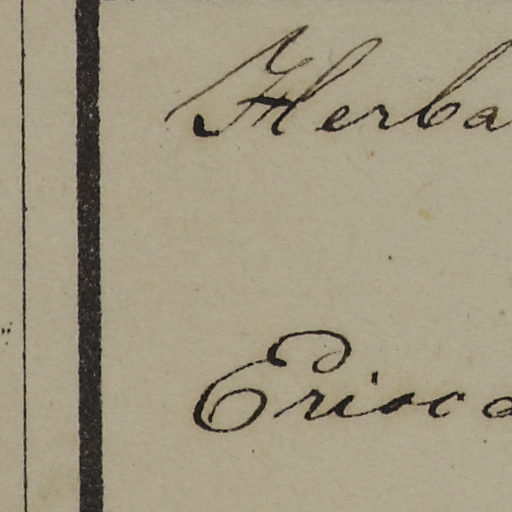 Herba
Erioca